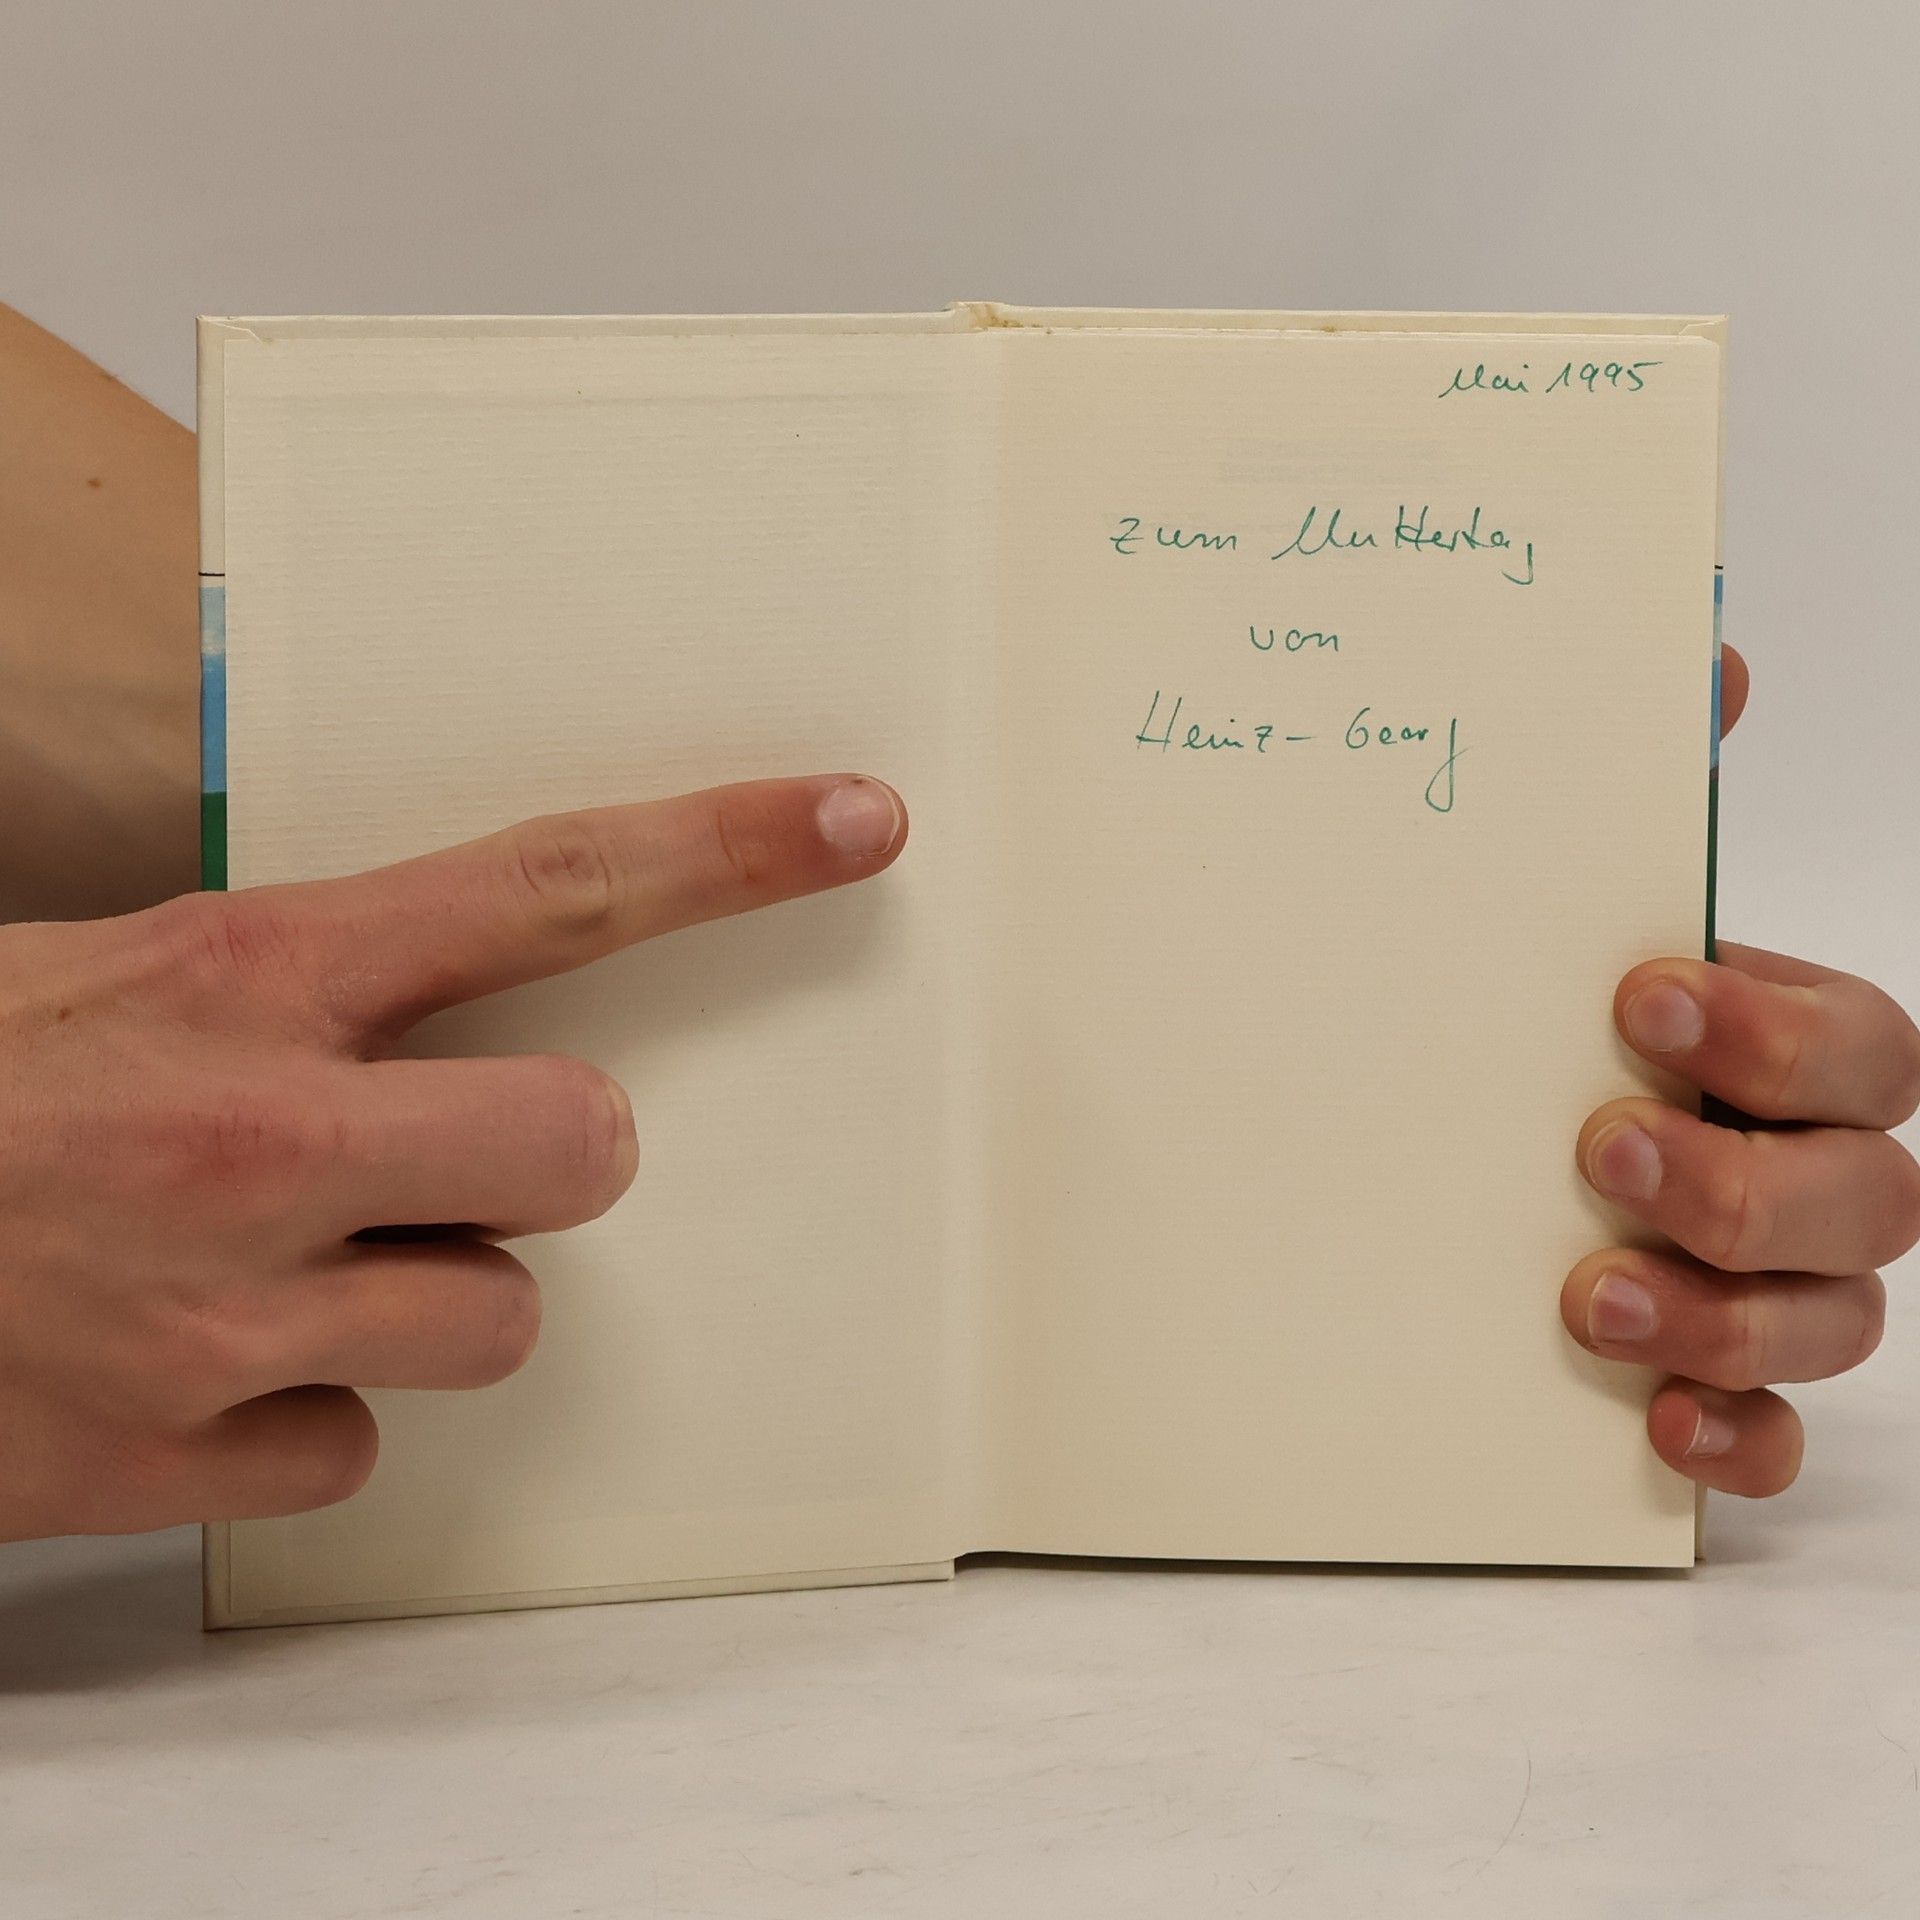 Mai 1995
zum Muttertag
von
Heinz - Georg